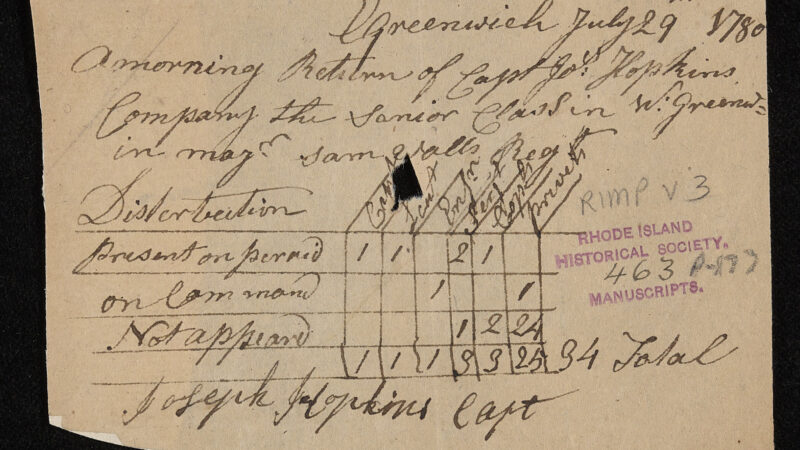 Greenwich July 29 1780
A morning Return of Capt Jos. Hopkins
Company the Senior Class in W. Greenw=
in majr Sam Walls Reg
Disterbution Capt Leut Ensn Serjt Corpls privets
Present on peraid 1 1 2 1
on Command 1 1
Not appeard 1 2 24
1 1 1 3 3 25 34 Total
Joseph Hopkins Capt
RIMP V 3
RHODE ISLAND
HISTORICAL SOCIETY.
463
MANUSCRIPTS.